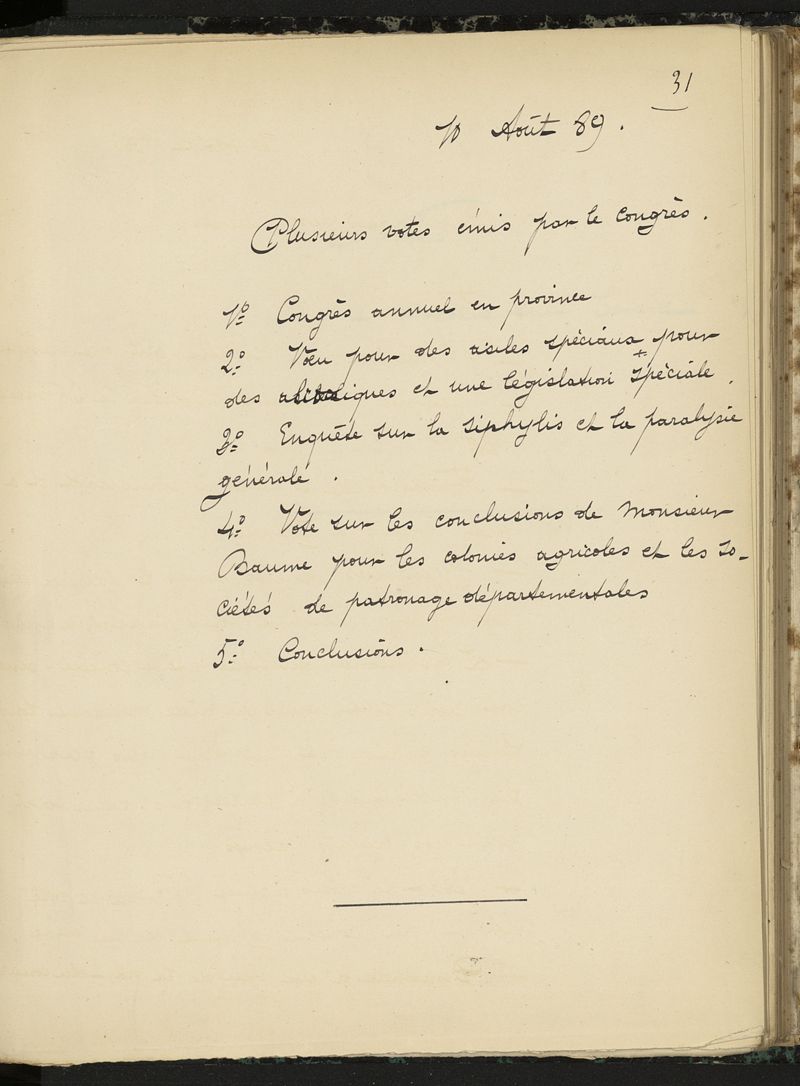 31
10 Août 89.
Plusieurs votes émis par le congrès.
1º Congrès annuel en province
2º. Vœu pour des asiles spéciaux pour
des alcooliques et une législation spéciale.
3º Enquête sur la siphylis et la paralysie
générale.
4º. Vote sur les conclusions de Monsieur
Baume pour les colonies agricoles et les so-
ciétés de patronage départementales
5º. Conclusions.